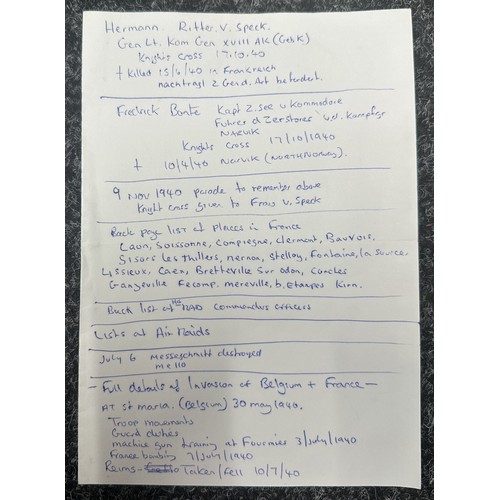 Hermann Ritter v. Speck.
Gen Lt. Kom Gen XVIII AK (Geb K)
Knights Cross 17.10.40
† Killed 15/6/40 in Frankreich
nachtragl z Gerd. Art beferdert.
Fredrick Bonte Kapt z. see u Kommodore
Fuhrer d Zerstores
NARVIK
Knights Cross 17/10/1940
† 10/4/40 Narvik (NORTH NORWAY).
9 NOV 1940 parade to remember above
Knight cross given to Frau v. Speck
Back page list of places in France
Laon, Soissonne, Compiegne, Clermont, Bauvois.
Sisors les thillers, Mernon, Stelloy, Fontaine, la Source,
Lissieux, Caen, Bretteville Sur odon, Concles
Gangeville Fecomp. mereville, b. Etampes Kirn.
Back list of HQ RAD Commandus officers
Lists of Air Raids
July 6 Messeschmitt destroyed
mello
- Full details of Invasion of Belgium + France -
AT St maria. (Belgium) 30 may 1940.
Troop movements
Guard duties
machine gun training at Fourmies 3/July/1940
France bombing 7/July/1940
Reims - Taken/fell 10/7/40